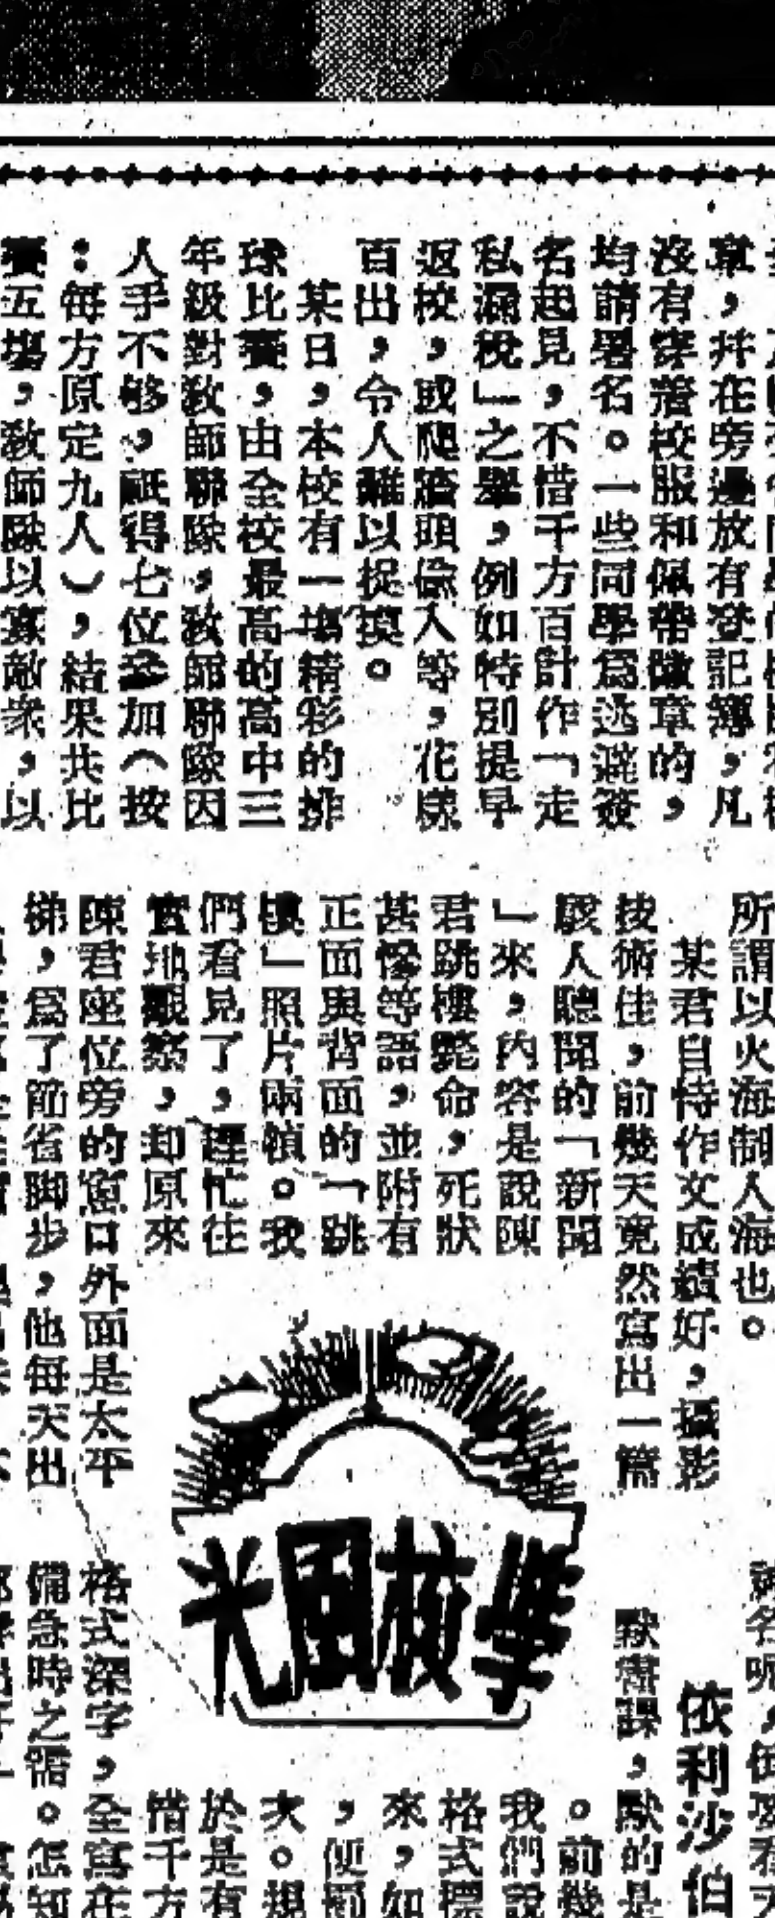 章，并在旁邊放有登記簿，凡
沒有穿着校服和佩帶徽章的，
均請署名。一些同學爲逃避簽
名起見，不惜千方百計作「走
私漏稅」之舉，例如特別提早
返校，或爬牆頭偷入等，花樣
百出，令人難以捉摸。
某日，本校有一塲精彩的排
球比賽，由全校最高的高中三
年級對敎師聯隊，敎師聯隊因
人手不够，祇得七位參加（按
：每方原定九人），結果共比
賽五塲，敎師隊以寡敵衆，以
所謂以火海制人海也。
某君自恃作文成績好，攝影
技術佳，前幾天竟然寫出一篇
駭人聽聞的「新聞
」來，內容是說陳
君跳樓斃命，死狀
甚慘等語，並附有
正面與背面的「跳
樓」照片兩幀。我
們看見了，趕忙往
實地觀察，却原來
陳君座位旁的窗口外面是太平
梯，爲了節省脚步，他每天出
學校風光
依利沙伯
默書課，默的是
。前幾
我們說
格式標
來，如
，便罰
次。規
於是有
惜千方
格式深字，全寫在
備急時之需。怎知